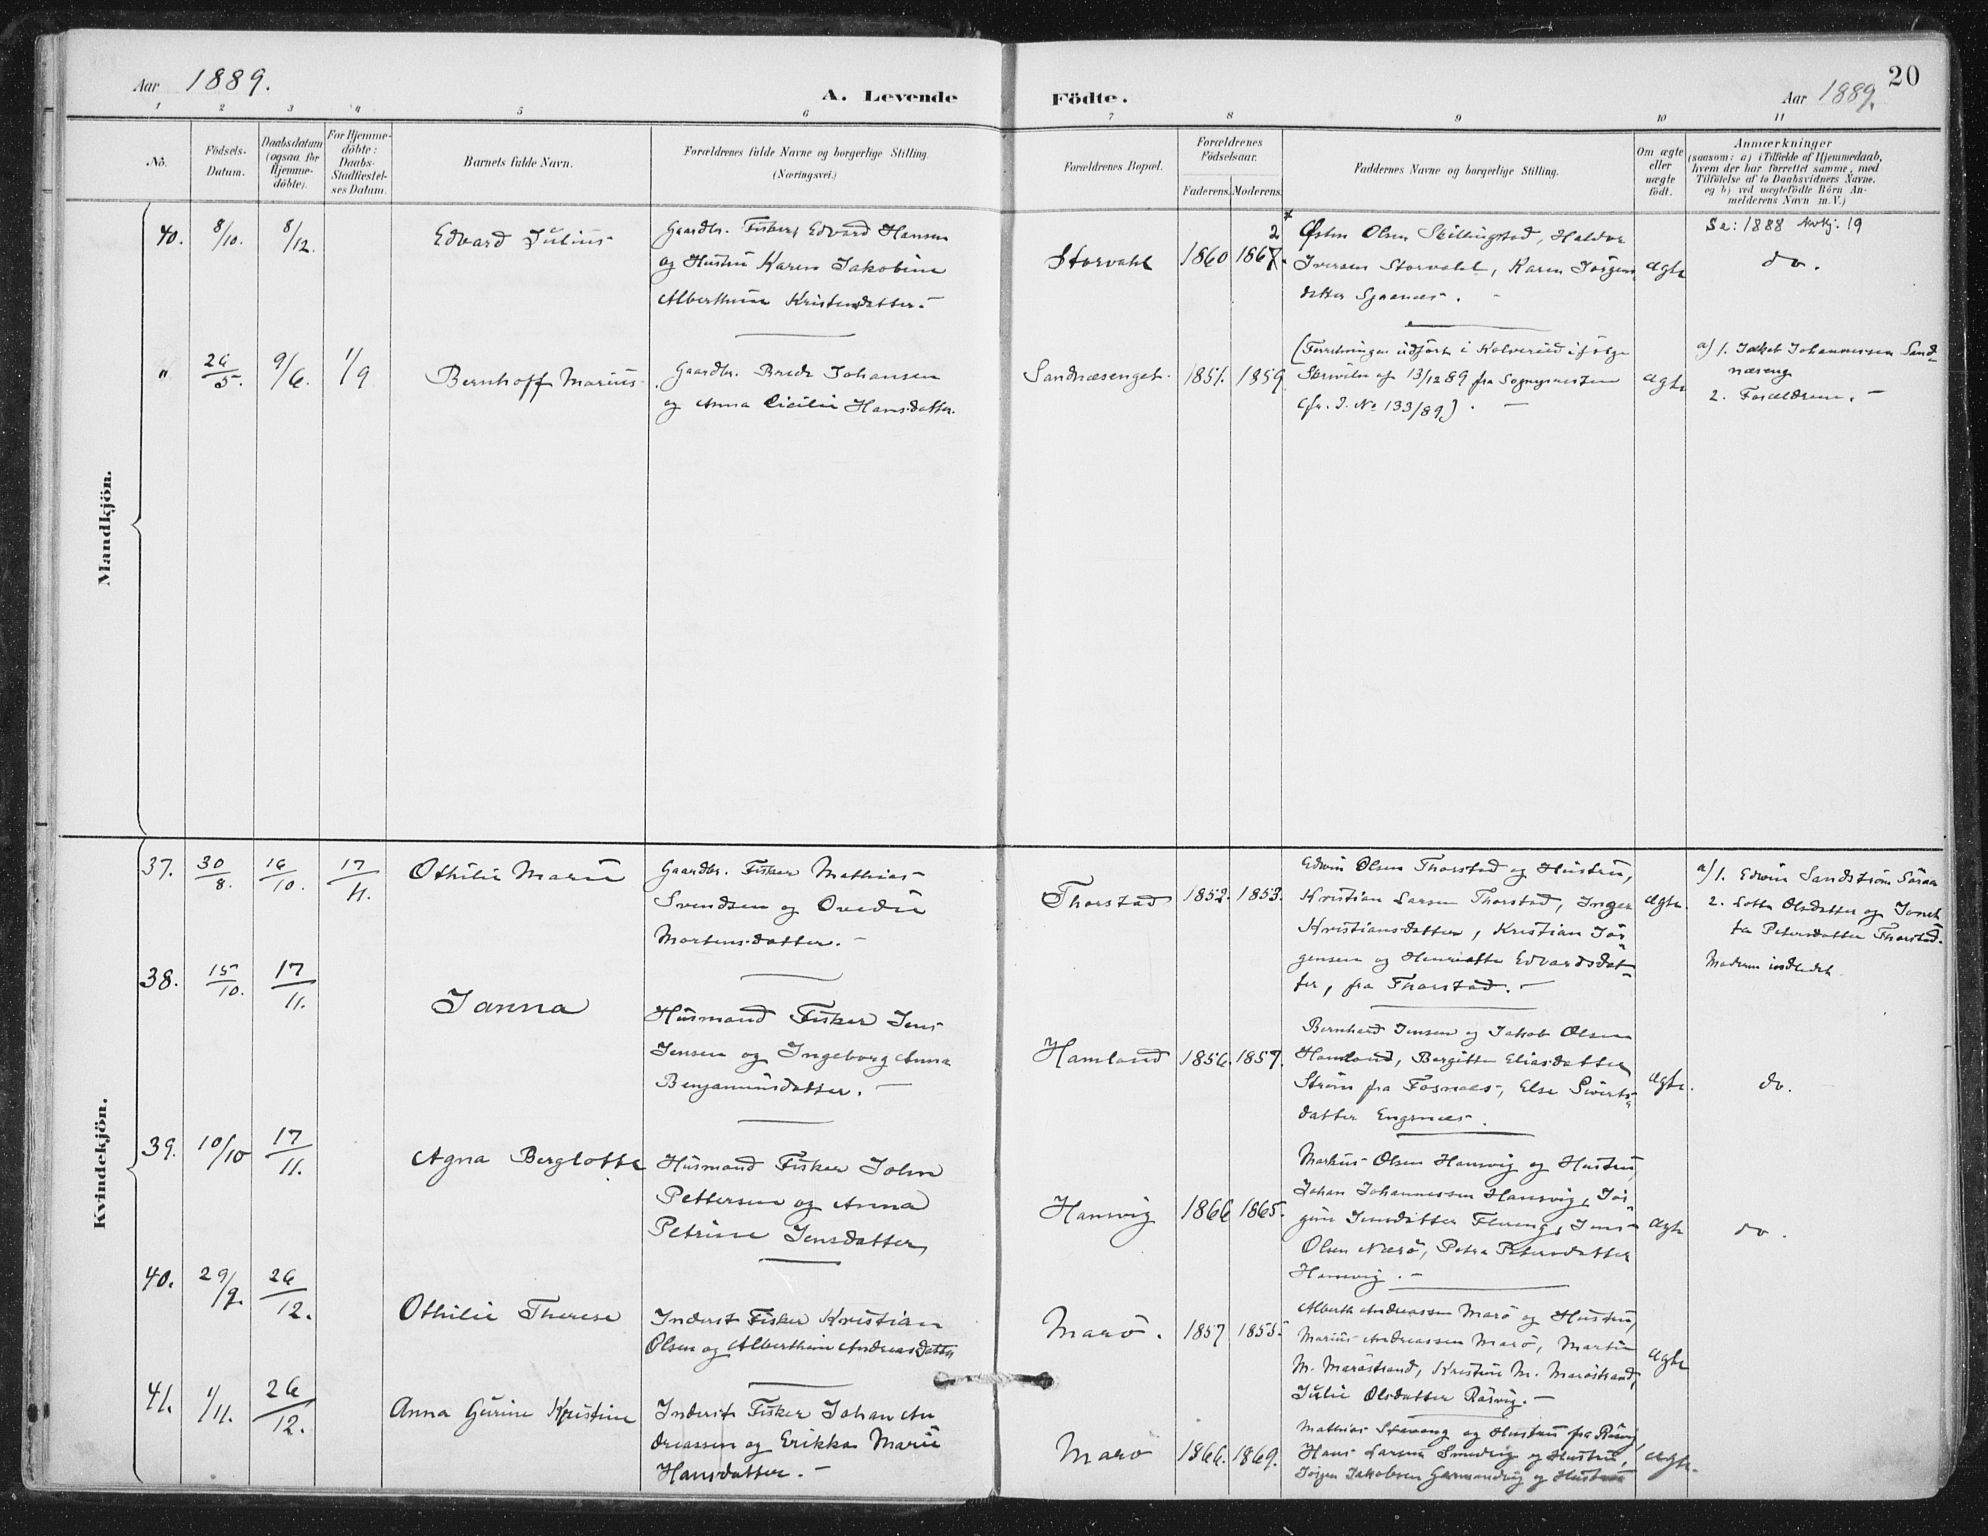 Aar 1889.
A. Levende Födte.
Aar 1889.
20
1 2 3 4 5 6 7 8 9 10 11
No.
Födsels-
Datum.
Daabsdatum
(ogsaa for
Hjemme-
döbte).
For Hjemme-
döbte:
Daabs-
Stadfæstel-
ses Datum.
Barnets fulde Navn.
Forældrenes fulde Navne og borgerlige Stilling.
(Næringsvei.)
Forældrenes Bopæl.
Forældrenes
Födselsaar.
Faderens. Moderens.
Faddernes Navne og borgerlige Stilling.
Om ægte
eller
uægte
födt.
Anmærkninger
(saasom: a) i Tilfælde af Hjemmedaab,
hvem der har forrettet samme, med
Tilföielse af to Daabsvidners Navne.
og b) ved uægtefödte Börn An-
melderens Navn m. V.)
Mandkjön.
40. 8/10. 8/12. Edvard Julius
Gaardbr. Fisker, Edvard Hansen
og Hustru Karen Jakobine
Alberthine Kristensdatter.
Storvahl 1860 1867. 2
Østen Olsen Skillingstad, Haldor
Iversen Storvahl, Karen Jørgens
datter Spaanes.
ægte
Se: 1888 19
do.
" 26/5. 9/6. 1/9 Bernhoff Marius
Gaardbr. Brede Johansen
og Anna Cicilie Hansdatter.
Sandnæsenget. 1851. 1859
(Forretningen udført i Kolvereid ifølge
Skrivelse af 13/12 89 fra Sognepresten
(fr. J. No 133/89).
ægte
a) 1. Jakob Johannessen Sand-
næseng
2. Forældrene.
Kvindekjön.
37. 30/8. 16/10. 17/11. Othilie Marie
Gaardbr. Fisker Mathias
Svendsen og Ovedie
Mortensdatter.
Thorstad 1852. 1853.
Edvin Olsen Thorstad og Hustru,
Kristian Larsen Thorstad, Inger
Kristiansdatter, Kristian Jør-
gensen og Henriette Edvardsdat-
ter, fra Thorstad.
ægte.
a) 1. Edvin Sandstrøm
2. Lotta Olsdatter og
Petersdatter Thorstad.
Moderen indledet.
38. 15/10. 17/11. Janna
Husmand Fisker Jens
Jensen og Ingeborg Anna
Benjaminsdatter.
Hamland 1856. 1857.
Bernhard Jensen og Jakob Olsen
Hamland, Bergitte Eliasdatter
Strøm fra Fosnaes, Else Siverts-
datter Engsnæs.
ægte.
do.
39. 10/10 17/11. Agna Berglotte
Husmand Fisker John
Pettersen og Anna
Petrine Jensdatter
Hansvig 1866 1865.
Markus Olsen Hansvig og Hustru,
Johan Johannessen Hansvig, Jør-
gine Jensdatter Flereng, Jens
Olsen Nærø, Petra Petersdatter
Hansvig.
ægte
do.
40. 29/9. 26/12. Othilie Therese
Inderst Fisker Kristian
Olsen og Alberthine Andreasdatter
Marø. 1857 1855.
Albert Andreassen Marø og Hustru,
Marius Andreassen Marø, Martin
M. Marøstrand, Kristine M. Marøstrand,
Julie Olsdatter Råsvig.
ægte
41. 1/11. 26/12. Anna Gurine Kristine
Inderst Fisker Johan An
dreassen og Erikka Marie
Hansdatter.
Marø 1866. 1869.
Mathias og Hustru fra
Hans Larsen Smedvig og Hustru,
Jørgen Jakobsen Garmandvig og Hustru
ægte.